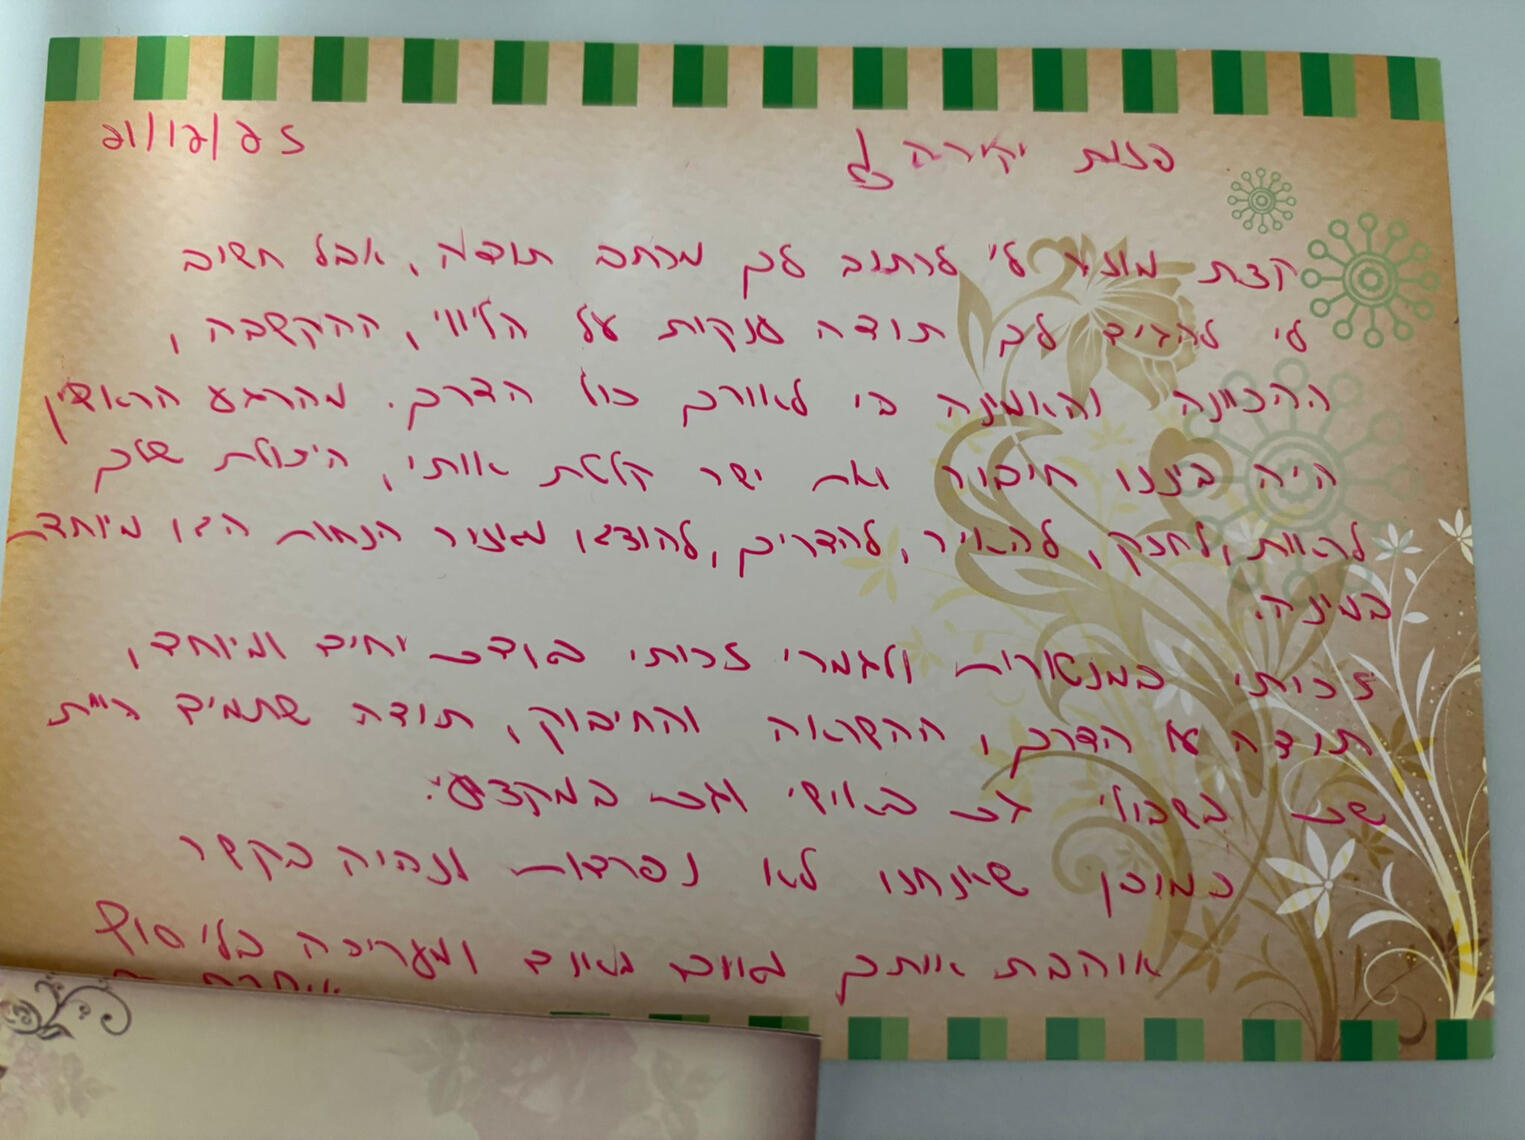 21/12/25
יקירה
קצת מוזר לי לכתוב לך מכתב תודה, אבל חשוב
לי להגיד לך תודה ענקית על הליווי, ההקשבה,
ההכוונה והאמונה בי לאורך כול הדרך. מהרגע הראשון
היה בננו חיבור ואת ישר קלטת אותי, היכולת שלך
לראות, לחזק, להאיר, להדריך, להוציא הנחות היא מיוחדת
במינה.
זכותי במנטורית ולגמרי זכותי באדם יחיד ומיוחד,
תודה על הדרך, ההשראה והחיבוק, תודה שתמיד היית
שם בשבילי גם באישי וגם במקצועי.
כמובן שאנחנו לא נפרדות ונהיה בקשר
אוהבת אותך מאוד ומעריכה בלי סוף